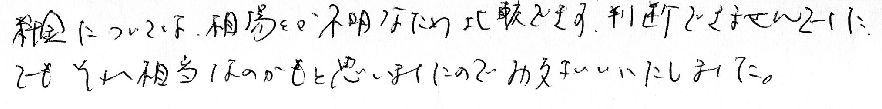 料金については、相場が不明なため比較できず、判断できませんでした。
でもそれ相当なのかもと思いましたのでお支払いいたしました。